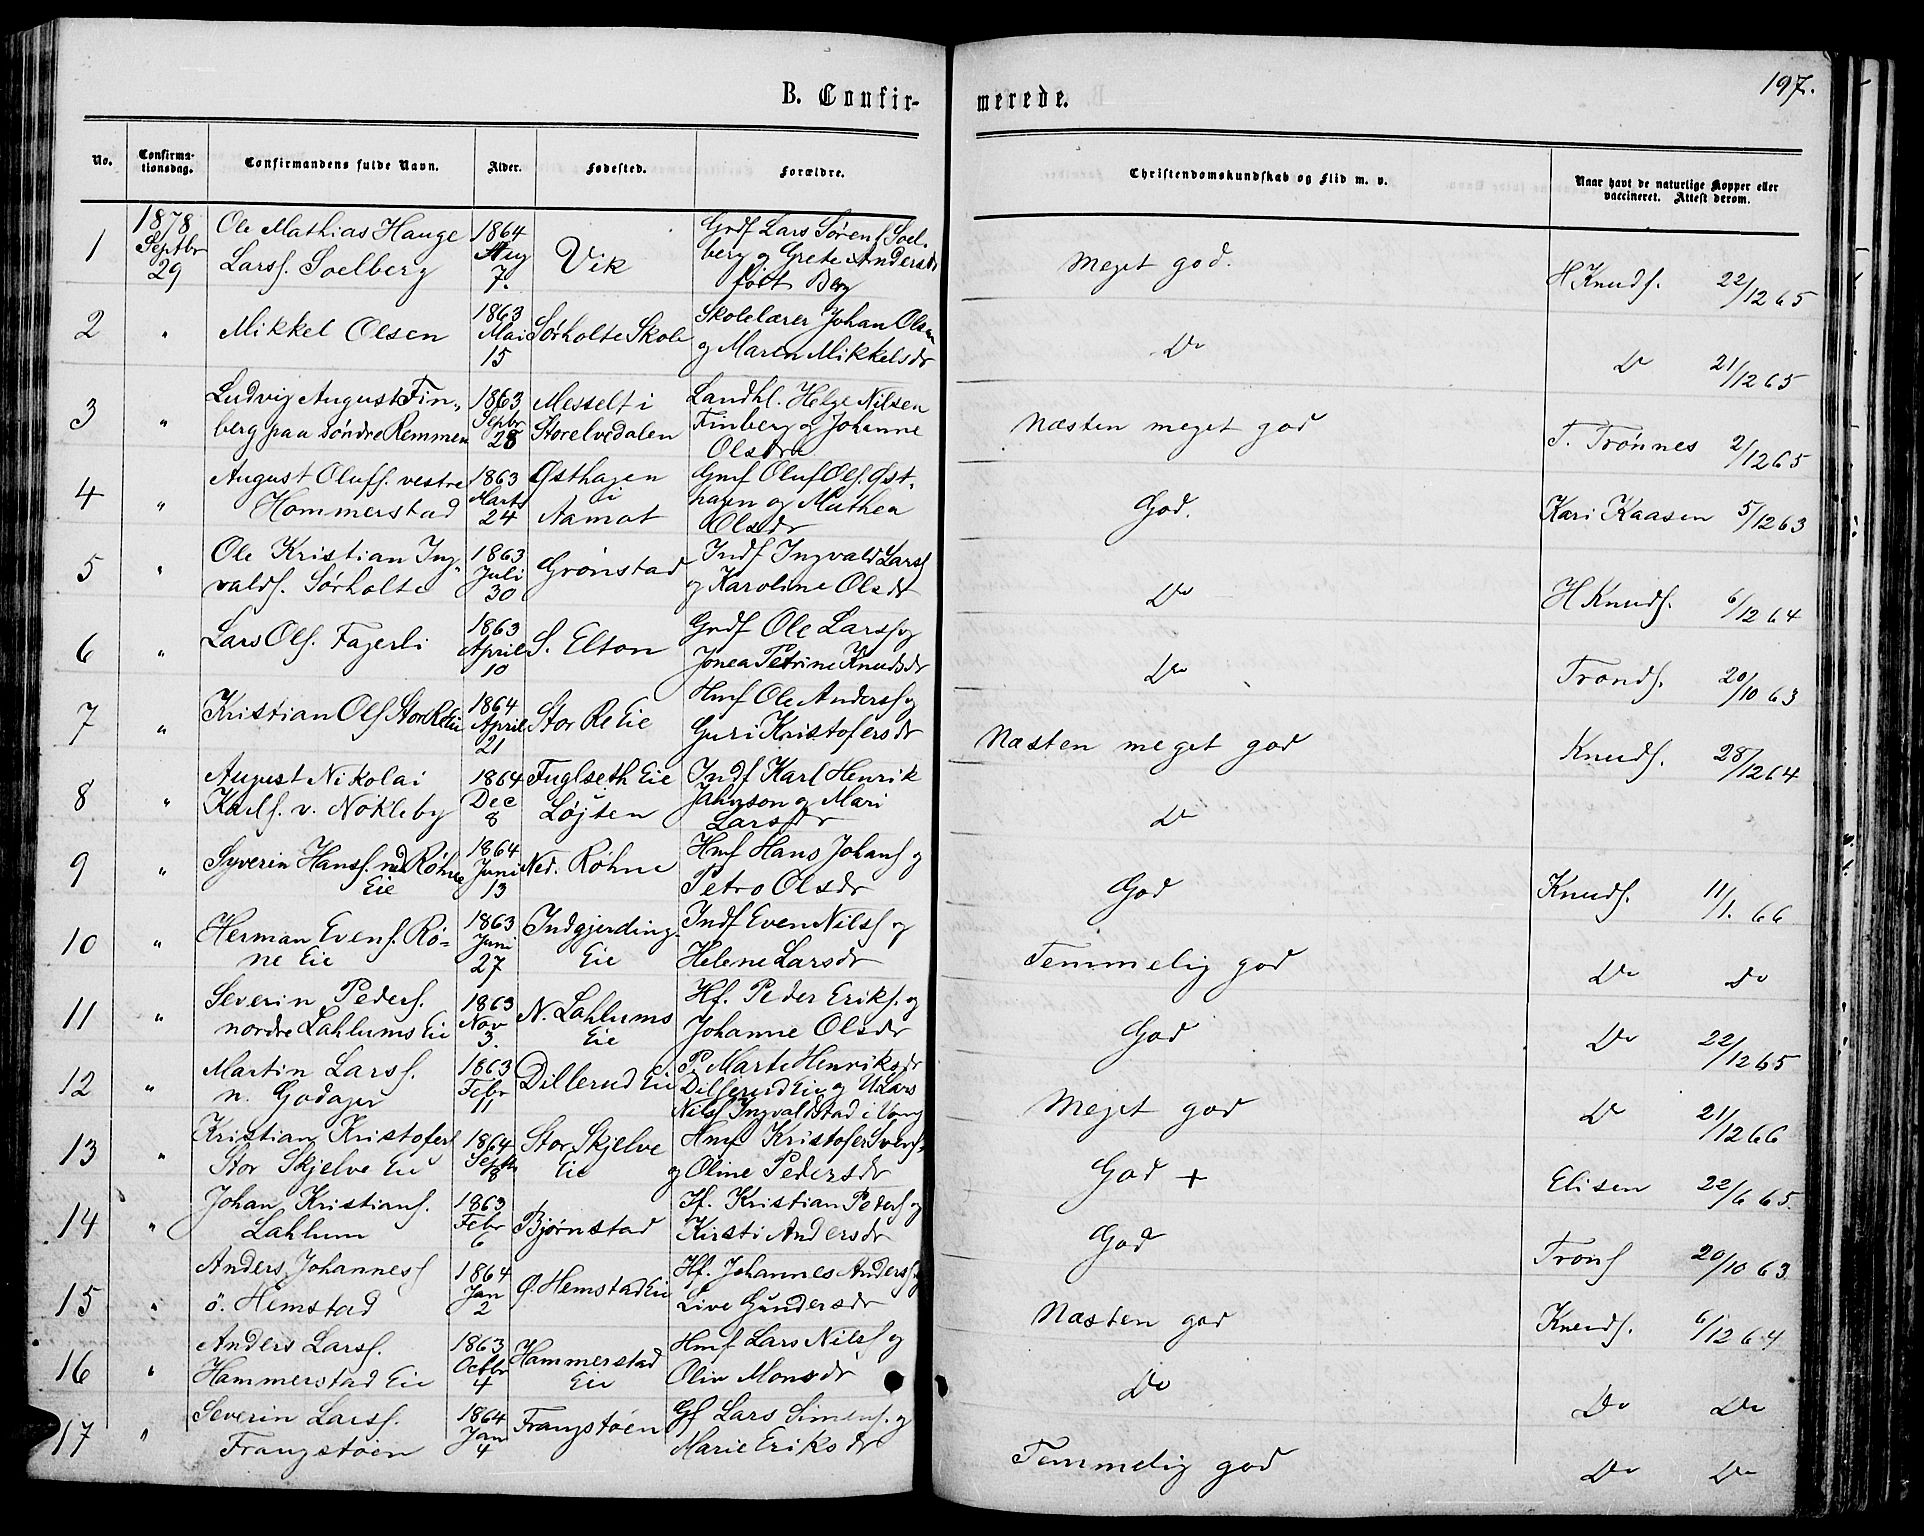 197.
B. Confir-
merede.
No.
Confirma-
tionsdag.
Confirmandens fulde Navn.
Alder.
Fødested.
Forældre.
Christendomskundskab og Flid m. v.
Naar havt de naturlige Kopper eller
vaccineret. Attest derom.
1 1878 Septbr 29 Ole Mathias Hauge 1864 Aug 7. Vik Grdf Lars Sørens Soel- Meget god. H Knuds. 22/12 65
Larss. Soelberg berg og Grete Andersdr
født Berg
2 " Mikkel Olsen 1863 Mai 15 Sørholte Skole Skolelærer Johan Olsen Do Do 21/12 65
og Maren Mikkelsdr
3 " Ludvig August Fin- 1863 Sepbr 28 Messelt i Landhl. Helge Nilsen Næsten meget god T. Trønnes 2/12 65
berg paa søndre Remmen Storelvedalen Finberg og Johanne
Olsdr
4 " August Olufs. vestre 1863 Marts 24 Østhagen Gmf Oluf Ols. Øst- God. Kari Kaasen 5/12 63
Hommerstad i hagen og Mathea
Aamot Olsdr
5 " Ole Kristian Ing- 1863 Juli 30 Grønstad Indf Ingvald Larss Do H Knuds. 6/12 64
valds. Sørholte og Karoline Olsdr
6 " Lars Ols. Fagerli 1863 April 10 S. Elton Grdf Ole Larss og Do Tronds. 20/10 63
Jonea Petrine Knudsdr
7 " Kristian Ols Stor Re Eie 1864 April 21 Stor Re Eie Hmf Ole Anderss og Næsten meget god Knuds. 28/12 64
Guri Kristofersdr
8 " August Nikolai 1864 Dec 8 Fuglseth Eie Indf Karl Henrik Do
Karls. v. Nøkleby Løjten Jahnson og Mari
Larsdr
9 " Syverin Hanss. ned Røhne 1864 Juni 13 Ned. Røhne Hmf Hans Johans og God Knuds. 11/1. 66
Eie Petro Olsdr
10 " Herman Evens. Rø- 1863 Juni 27 Indgjerding- Indf Even Nilss og Temmelig god Do do
ne Eie Eie Helene Larsdr
11 " Severin Peders. 1863 Nov 3. N. Lahlums Hf. Peder Eriks. og God Do 22/12 65
nordre Lahlums Eie Eie Johanne Olsdr
12 " Martin Larss. 1863 Febr 11 Dillerud Eie P. Marte Henriksdr Meget god Do 21/12 66
n. Godager Dillerud Eie og U Lars
Nilss Ingvaldstad i Vang
13 " Kristian Kristofers 1864 Septbr 8 Stor Skjelve Hmf Kristofer Svens. God + Elisen 22/6 65.
Stor Skjelve Eie Eie og Oline Pedersdr
14 " Johan Kristians. 1863 Febr 6 Bjørnstad Hf. Kristian Peders og God Trons 20/10 63.
Lahlum Kirsti Andersdr
15 " Anders Johanness 1864 Jan 2 Ø. Hemstad Eie Hf. Johannes Anderss og Næsten god Knuds. 6/12 64
ø. Hemstad Live Gundersdr
16 " Anders Larss. 1863 Octbr 4 Hammerstad Hmf Lars Nilss og Do Do Do
Hammerstad Eie Eie Olin Monsdr
17 " Severin Larss. 1864 Jan 4 Frangstøen Gf Lars Simens. og Temmelig god Do Do
Frangstøen Marie Eriksdr